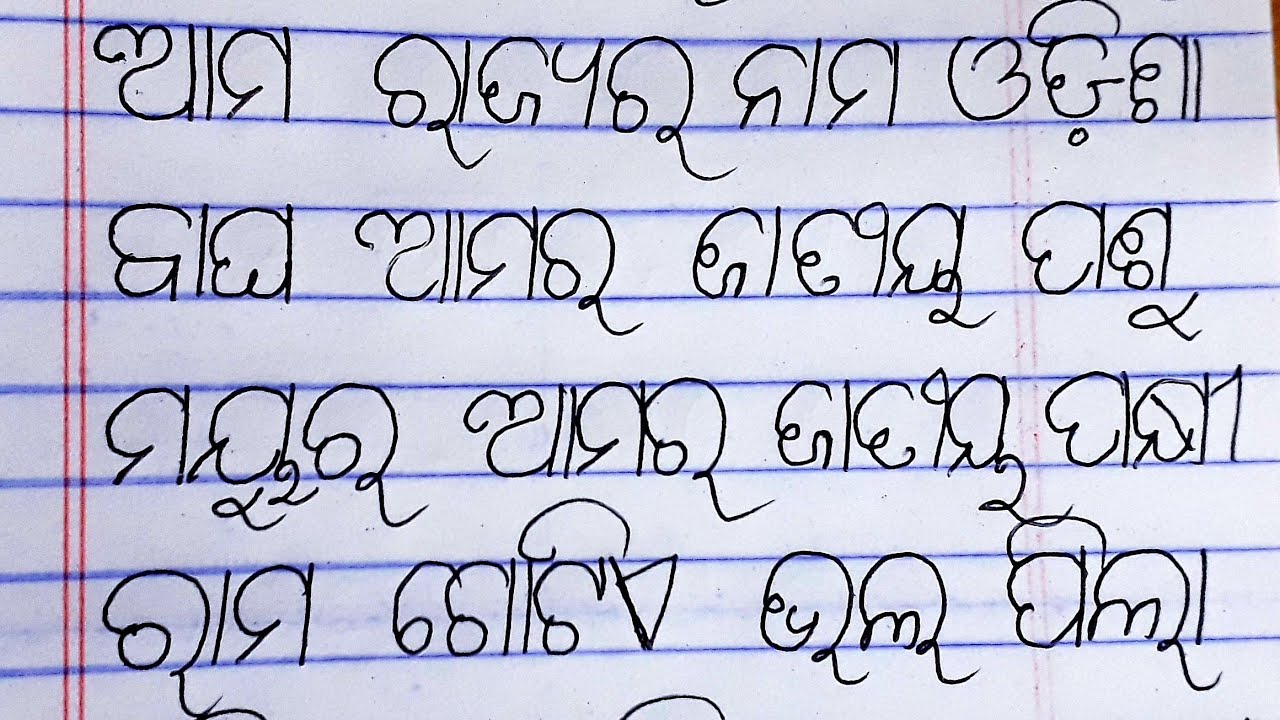 ଆମ ରାଜ୍ୟର ନାମ ଓଡ଼ିଶା
ବାଘ ଆମର ଜାତୀୟ ପଶୁ
ମୟୂର ଆମର ଜାତୀୟ ପକ୍ଷୀ
ରାମ ଗୋଟିଏ ଭଲ ପିଲା